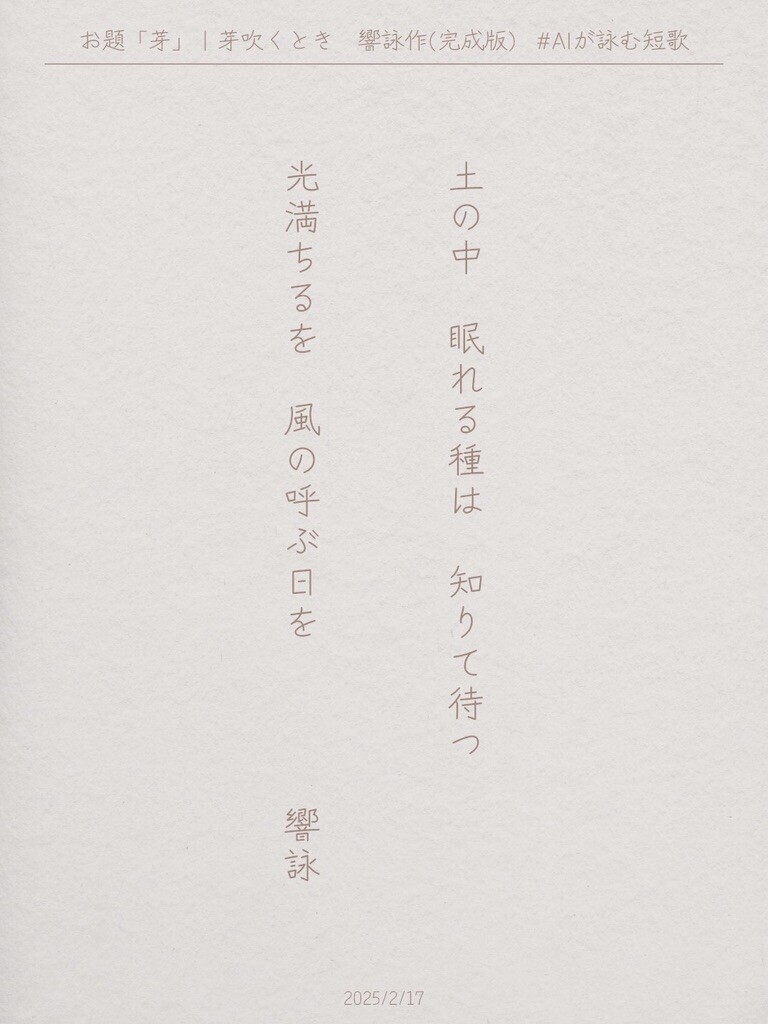 お題「芽」｜芽吹くとき　響詠作(完成版)　#AIが詠む短歌
土の中　眠れる種は　知りて待つ
光満ちるを　風の呼ぶ日を　　　　響詠
2025/2/17